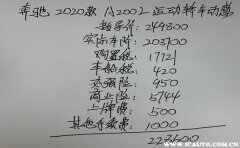 奔驰 2020款 A200L 运动轿车动感
指导价: 249800
实际车价: 203700
购置税: 17721
车船税: 420
交强险: 950
商业险: 5744
上牌费: 500
其他手续费: 1000